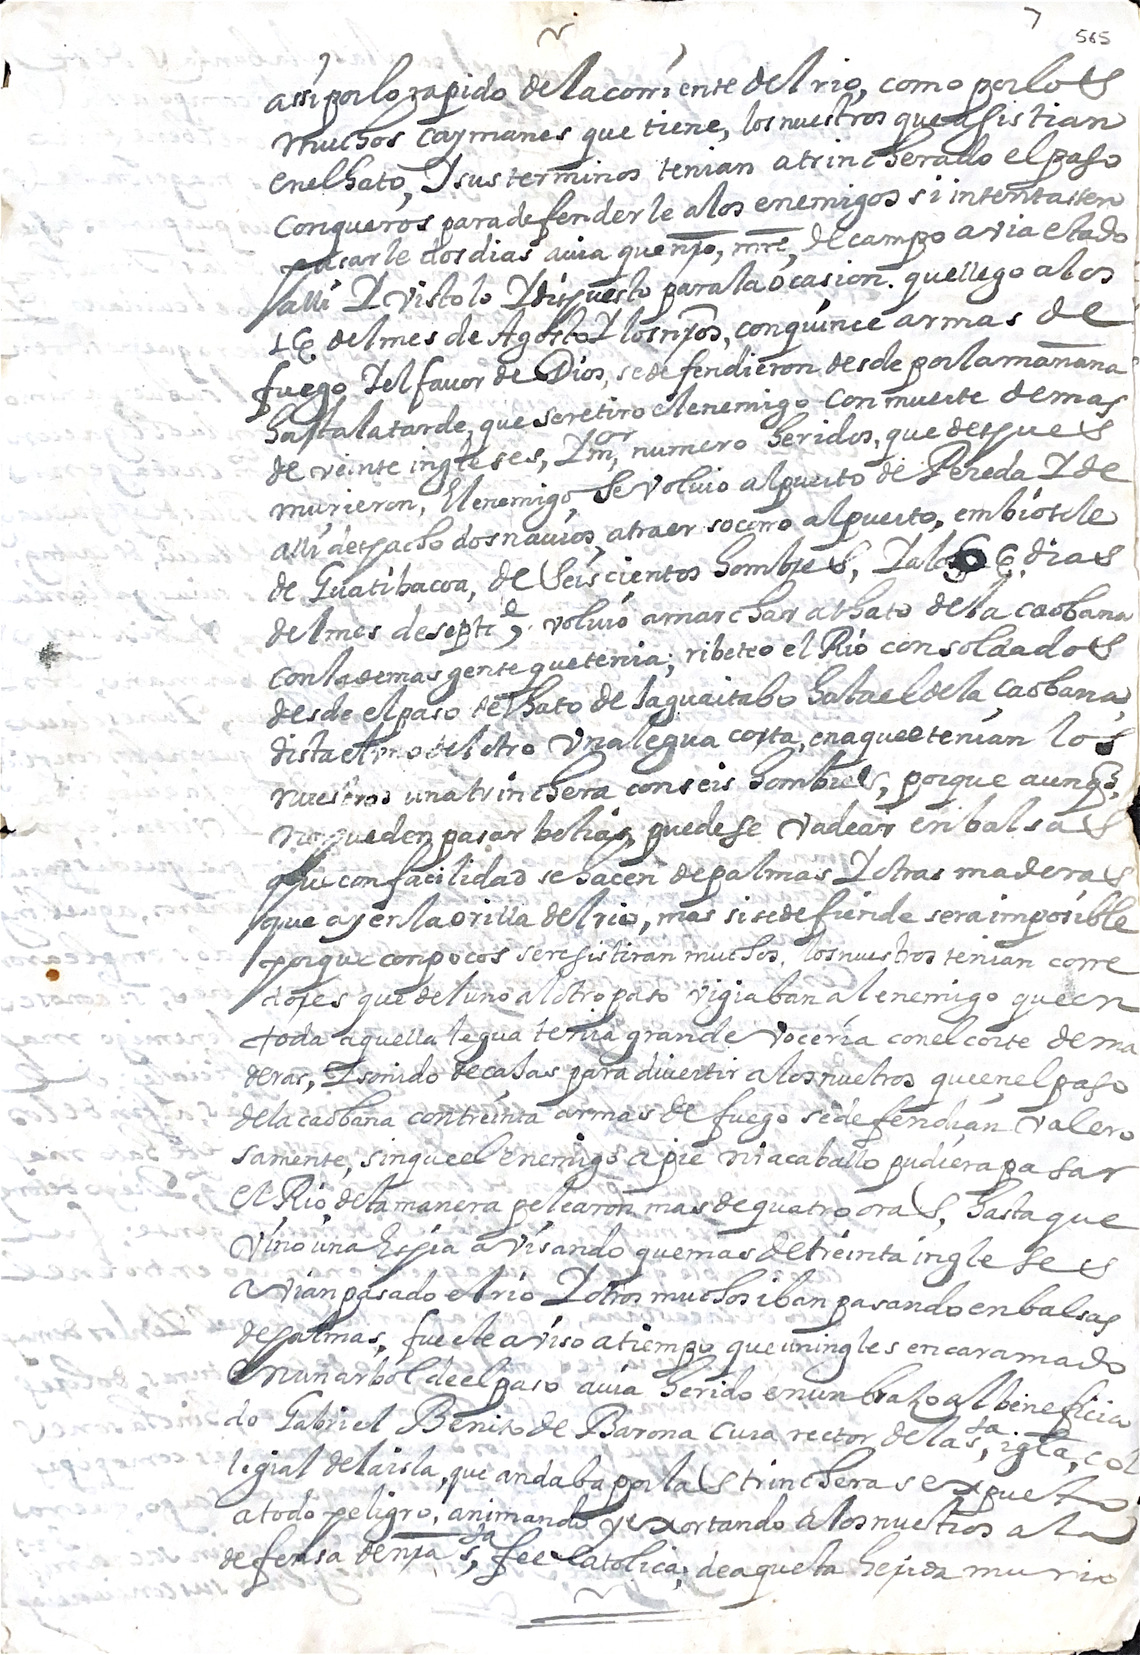 7
565
assi por lo rapido de la corriente del rio, como por los
muchos caymanes que tiene, los nuestros que asistian
en el hato, y sus terminos tenian atrincherado el paso
con queros para defenderle a los enemigos si intentasen
pasarle dos dias avia que nro, mre, de campo avia estado
alli y visto lo y dispuesto para la ocasion. que llego a los
16 del mes de Agosto y los nros, con quince armas de
fuego y el favor de Dios, se defendieron desde por la mañana
hasta la tarde, que se retiro el enemigo con muerte de mas
de veinte ingleses, y mor, numero heridos, que despues
murieron, El enemigo, se volvio al puerto de Pereda y de
alli despacho dos navios, a traer socorro al puerto, embiosele
de Guatibacoa, de seiscientos hombres, y a los 6 dias
del mes de septie, volvio a marchar a hato de la caobana
con la demas gente que tenia; ribeteo el Rio con soldados
desde el paso del hato de Jaguaitabo hasta el de la caobana
dista el uno del otro una legua corta, en aquel tenian los
nuestros una trinchera con seis hombres, porque aunq,
no pueden pasar bestias, puedese vadear en balsas
que con facilidad se hacen de palmas y otras maderas
que ay en la orilla del rio, mas si se defiende sera imposible
porque con pocos se resistiran muchos. los nuestros tenian corre
dores que del uno al otro paso vigiaban al enemigo que en
toda aquella legua tenia grande voceria con el corte de ma
deras, y sonido de cajas para divertir a los nuestros que en el paso
de la caobana con treinta armas de fuego se defendian valero
samente, sin que el enemigo a pie ni a caballo pudiera pasar
el Rio, desta manera pelearon mas de quatro oras, hasta que
vino una Espia avisando que mas de treinta ingleses
avian pasado el rio y otros muchos iban pasando en balsas
de palmas, fue este aviso a tiempo que un ingles encaramado
en un arbol de el paso avia herido en un brazo al beneficia
do Gabriel Benito de Barona cura rector de la sta, iglã, col
legial de la isla, que andaba por las trincheras expuesto
a todo peligro, animando y exortando a los nuestros a la
defensa de nra sta, fee catolica; de aquesta herida murio